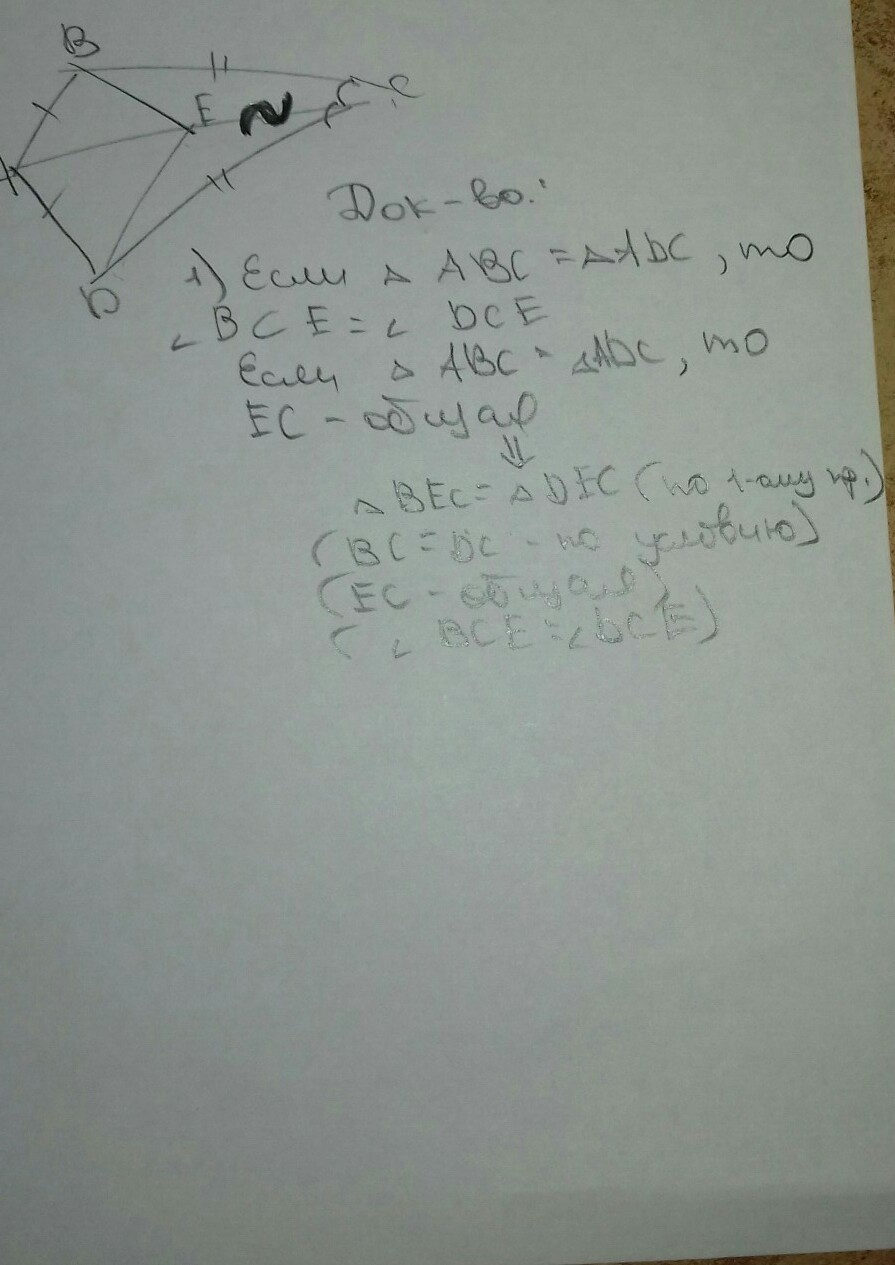 B
E
C
A
D
Док-во:
1) Если △ ABC = △ADC, то
∠ BCE = ∠ DCE
Если △ ABC = △ADC, то
EC - общая
⇓
△ BEC = △ DEC (по 1-ому пр.)
(BC = DC - по условию)
(EC - общая)
(∠ BCE = ∠DCE)